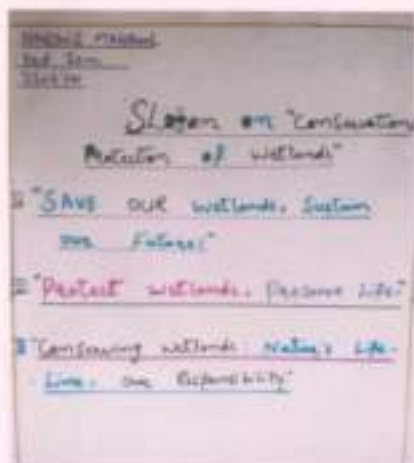 Slogan on "Conservation
Protection of wetlands"
"SAVE OUR wetlands, Sustain
our Future:"
"Protect wetlands, Preserve Life."
"Conserving wetlands Nature's Life-
Line, our Responsibility"